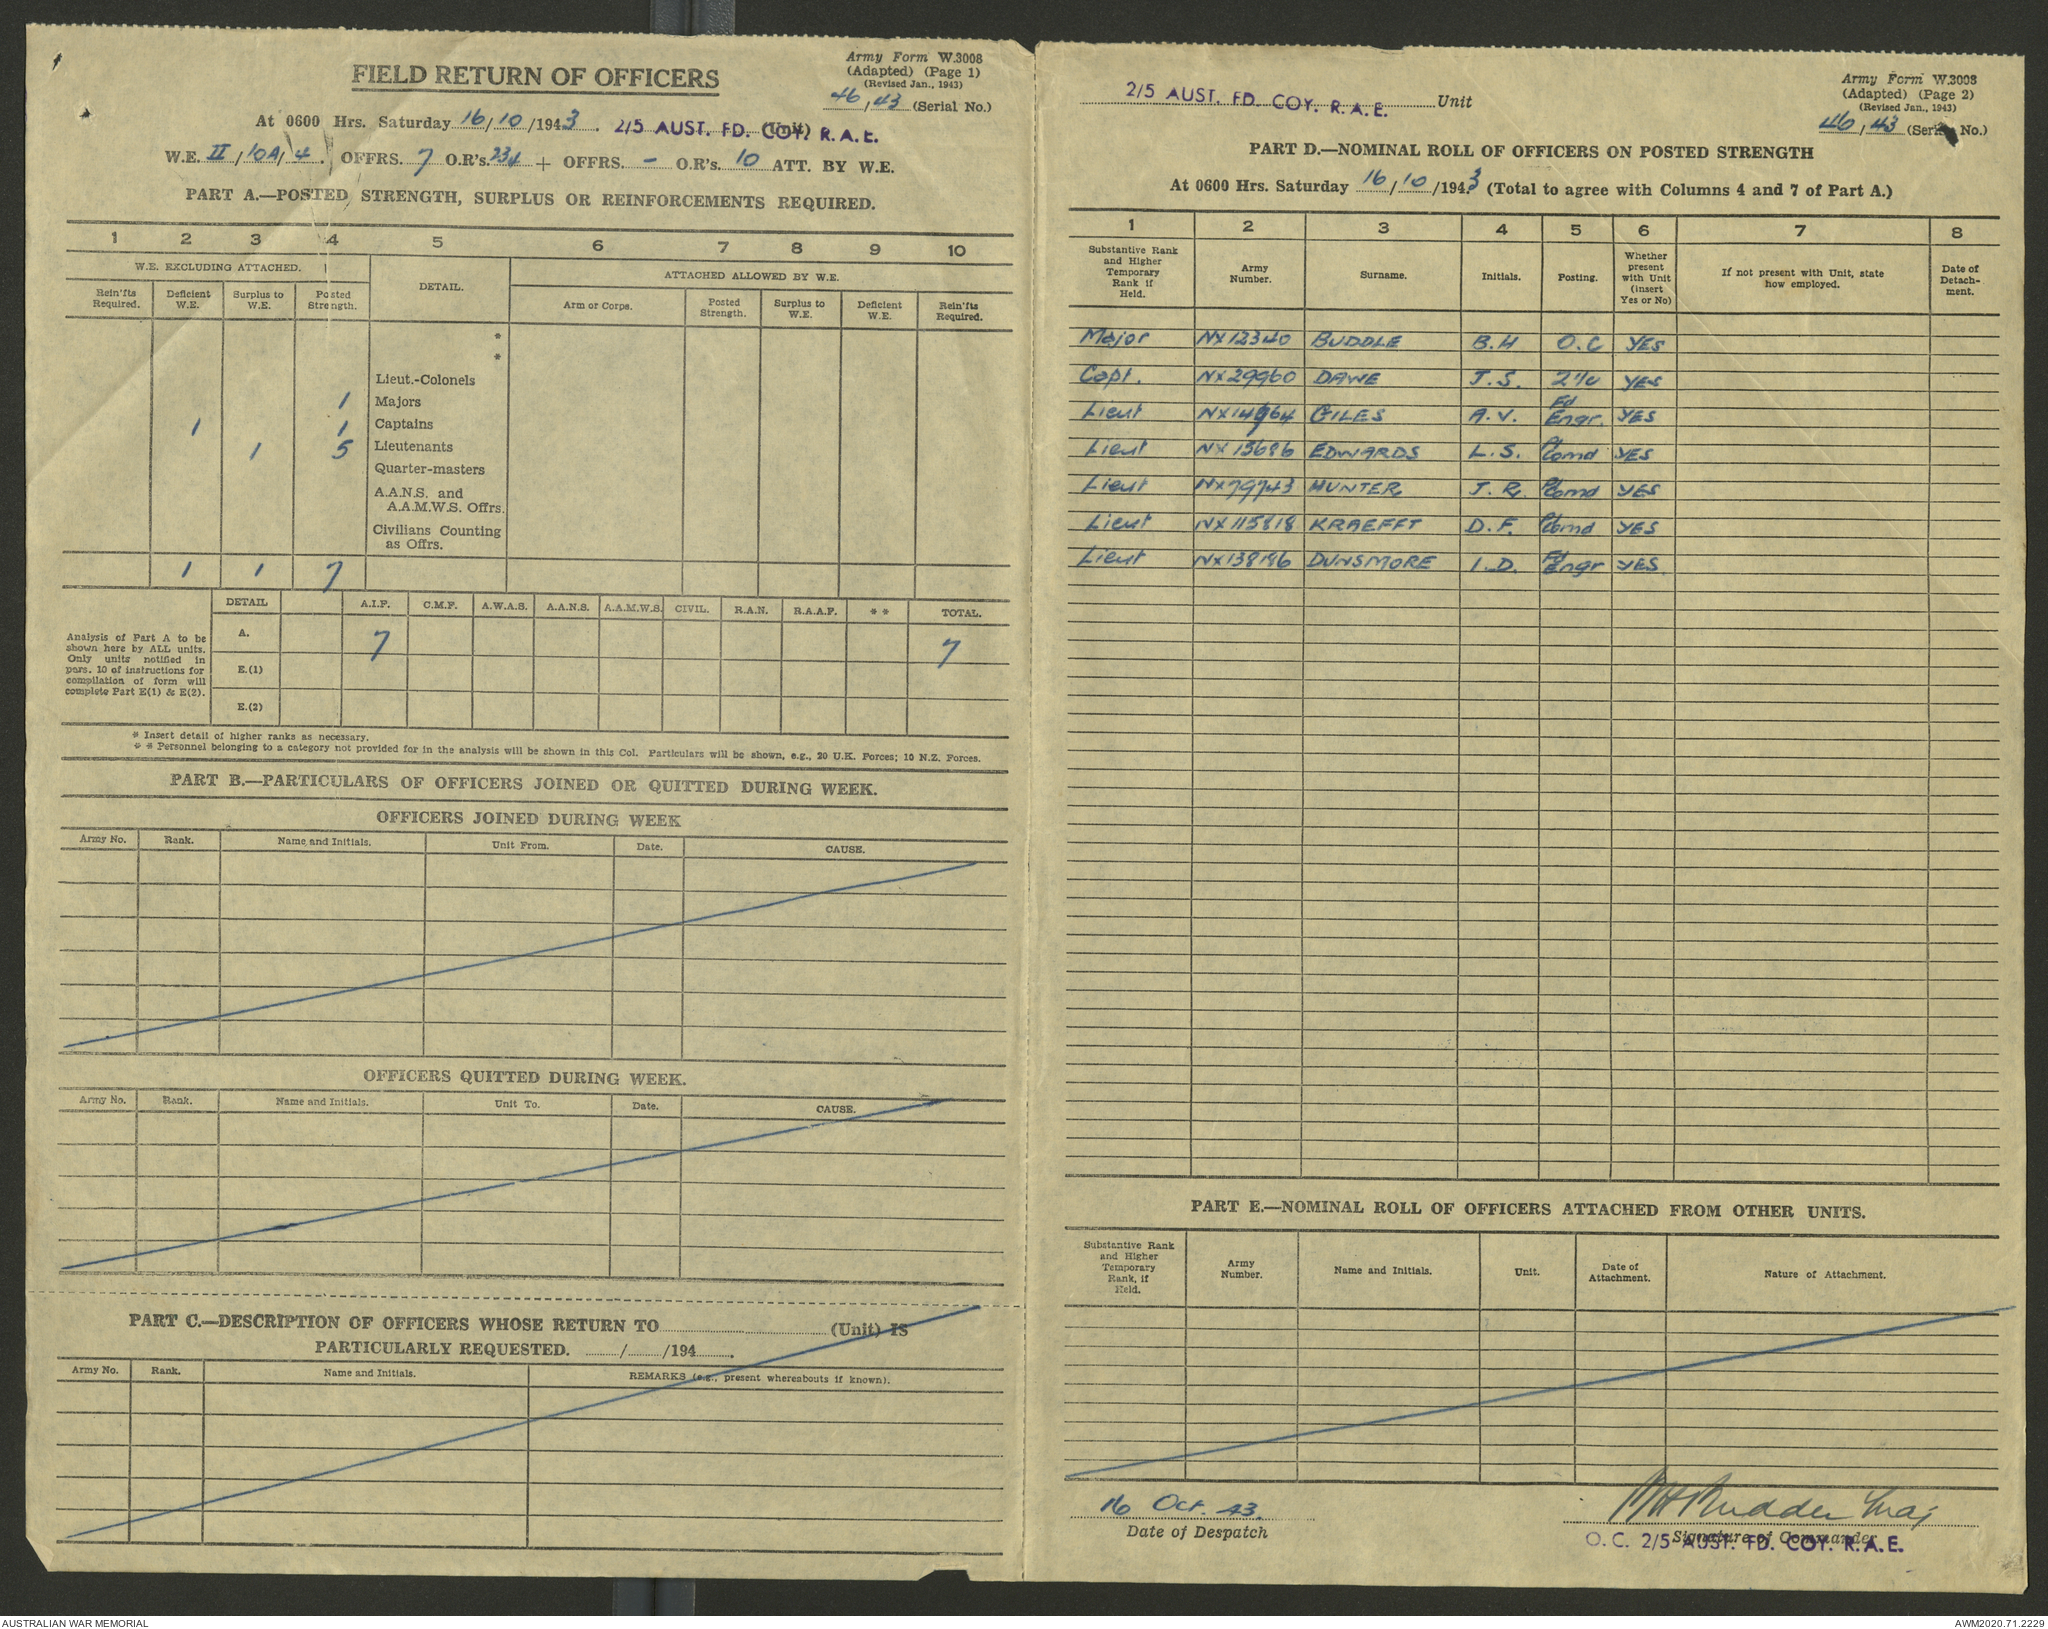 FIELD RETURN OF OFFICERS
Army Form W.3008
(Adapted) (Page 1)
(Revised Jan., 1943)
46/43 (Serial No.)
At 0600 Hrs. Saturday 16/10/1943. 2/5 AUST. FD. COY. R.A.E. (Unit)
W.E. II/10A/4. OFFRS. 7 O.R's. 234 + OFFRS. - O.R's. 10 ATT. BY W.E.
PART A.—POSTED STRENGTH, SURPLUS OR REINFORCEMENTS REQUIRED.
1 2 3 4 5 6 7 8 9 10
W.E. EXCLUDING ATTACHED. DETAIL. ATTACHED ALLOWED BY W.E.
Rein'fts Required. Deficient W.E. Surplus to W.E. Posted Strength. Arm or Corps. Posted Strength. Surplus to W.E. Deficient W.E. Rein'fts Required.
*
*
Lieut.-Colonels
1 Majors
1 1 Captains
1 5 Lieutenants
Quarter-masters
A.A.N.S. and
A.A.M.W.S. Offrs.
Civilians Counting
as Offrs.
1 1 7
DETAIL A.I.F. C.M.F. A.W.A.S. A.A.N.S. A.A.M.W.S. CIVIL. R.A.N. R.A.A.F. ** TOTAL.
Analysis of Part A to be
shown here by ALL units.
Only units notified in
para. 10 of instructions for
compilation of form will
complete Part E(1) & E(2).
A. 7 7
E.(1)
E.(2)
* Insert detail of higher ranks as necessary.
** Personnel belonging to a category not provided for in the analysis will be shown in this Col. Particulars will be shown, e.g., 20 U.K. Forces; 10 N.Z. Forces.
PART B.—PARTICULARS OF OFFICERS JOINED OR QUITTED DURING WEEK.
OFFICERS JOINED DURING WEEK
Army No. Rank. Name and Initials. Unit From. Date. CAUSE.
OFFICERS QUITTED DURING WEEK.
Army No. Rank. Name and Initials. Unit To. Date. CAUSE.
PART C.—DESCRIPTION OF OFFICERS WHOSE RETURN TO (Unit) IS
PARTICULARLY REQUESTED. / /194 .
Army No. Rank. Name and Initials. REMARKS (e.g., present whereabouts if known).
2/5 AUST. FD. COY. R.A.E. Unit
Army Form W.3008
(Adapted) (Page 2)
(Revised Jan., 1943)
46/43 (Serial No.)
PART D.—NOMINAL ROLL OF OFFICERS ON POSTED STRENGTH
At 0600 Hrs. Saturday 16/10/1943 (Total to agree with Columns 4 and 7 of Part A.)
1 2 3 4 5 6 7 8
Substantive Rank and Higher Temporary Rank if Held. Army Number. Surname. Initials. Posting. Whether present with Unit (insert Yes or No) If not present with Unit, state how employed. Date of Detachment.
Major NX12340 BUDDLE B.H O.C YES
Capt. NX29960 DAWE J.S. 2i/c YES
Lieut GILES A.V. Fd Engr. YES
Lieut NX15686 EDWARDS L.S. Pl Comd YES
Lieut NX79743 HUNTER J.R. Pl Comd YES
Lieut NX115818 KRAEFFT D.F. Pl Comd YES
Lieut DUNSMORE I.D. Fd Engr YES
PART E.—NOMINAL ROLL OF OFFICERS ATTACHED FROM OTHER UNITS.
Substantive Rank and Higher Temporary Rank, if Held. Army Number. Name and Initials. Unit. Date of Attachment. Nature of Attachment.
16 Oct. 43.
Date of Despatch
BH Buddle Maj
Signature of Commander
O.C. 2/5 AUST. FD. COY. R.A.E.
AUSTRALIAN WAR MEMORIAL
AWM2020.71.2229